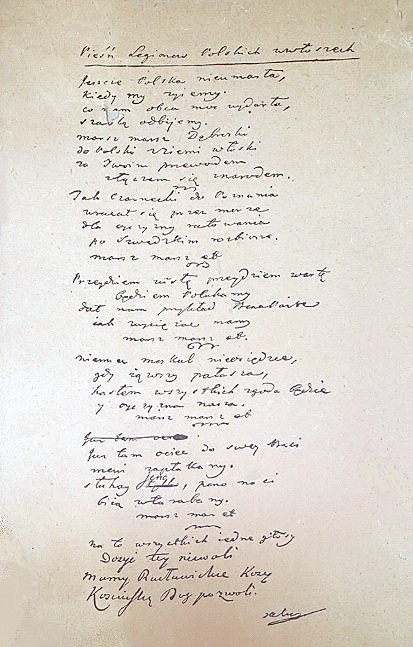 Pieśń Legionów Polskich we Włoszech
Jeszcze Polska nie umarła,
kiedy my żyjemy.
co nam obca moc wydarła,
szablą odbijemy.
marsz marsz Dąbrowski
do Polski z ziemi włoski
za Twoim przewodem
złączem się z narodem.
Jak Czarnecki do Poznania
wracał się przez morze
dla ojczyzny ratowania
po Szwedzkim rozbiorze.
marsz marsz etc
Przejdziem Wisłę przejdziem Wartę
będziem Polakamy
dał nam przykład Bonaparte
jak zwyciężać mamy
marsz marsz etc.
niemiec moskal nieosiędzie,
gdy jąwszy pałasza,
hasłem wszystkich zgoda będzie
y ojczyzna nasza.
marsz marsz etc
Już tam ociec do swej Basi
mówi zapłakany.
słuchay jeno, pono nasi
biią w tarabany.
marsz marsz etc
na to wszystkich jedne głosy
Dosyć tey niewoli
mamy Racławickie Kosy
Kościuszkę Bog pozwoli.